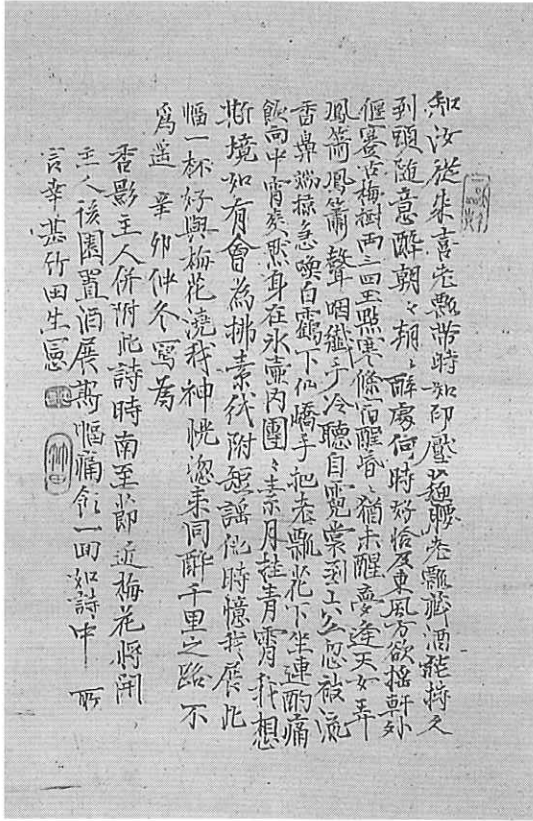 知汝從来喜老瓢帶時如印壓腰老瓢蔵酒能持久
到頭随意酔朝々朝々酔處何時好恰及東風方欲搖軒外
偃蹇古梅樹両三四玉點寒條宿醒昏々猶未醒夢逢天女弄
鳳簫鳳簫聲咽纖手冷聴自霓裳到六幺忽被流
香鼻端掠急喚白鶴下仙嶠手把老瓢花下坐連酌痛
飲向中宵然身在氷壺内團々素月挂青霄我想
斯境如有會為拂素箋附短謡他時憶我展此
幅一杯好與梅花澆我神恍惚来同酔千里之路不
為遥 辛卯仲冬寫為
香影主人併附此詩時南至節近梅花将開
主人園置酒展斯幅痛飲一回如詩中所
言幸甚竹田生憲